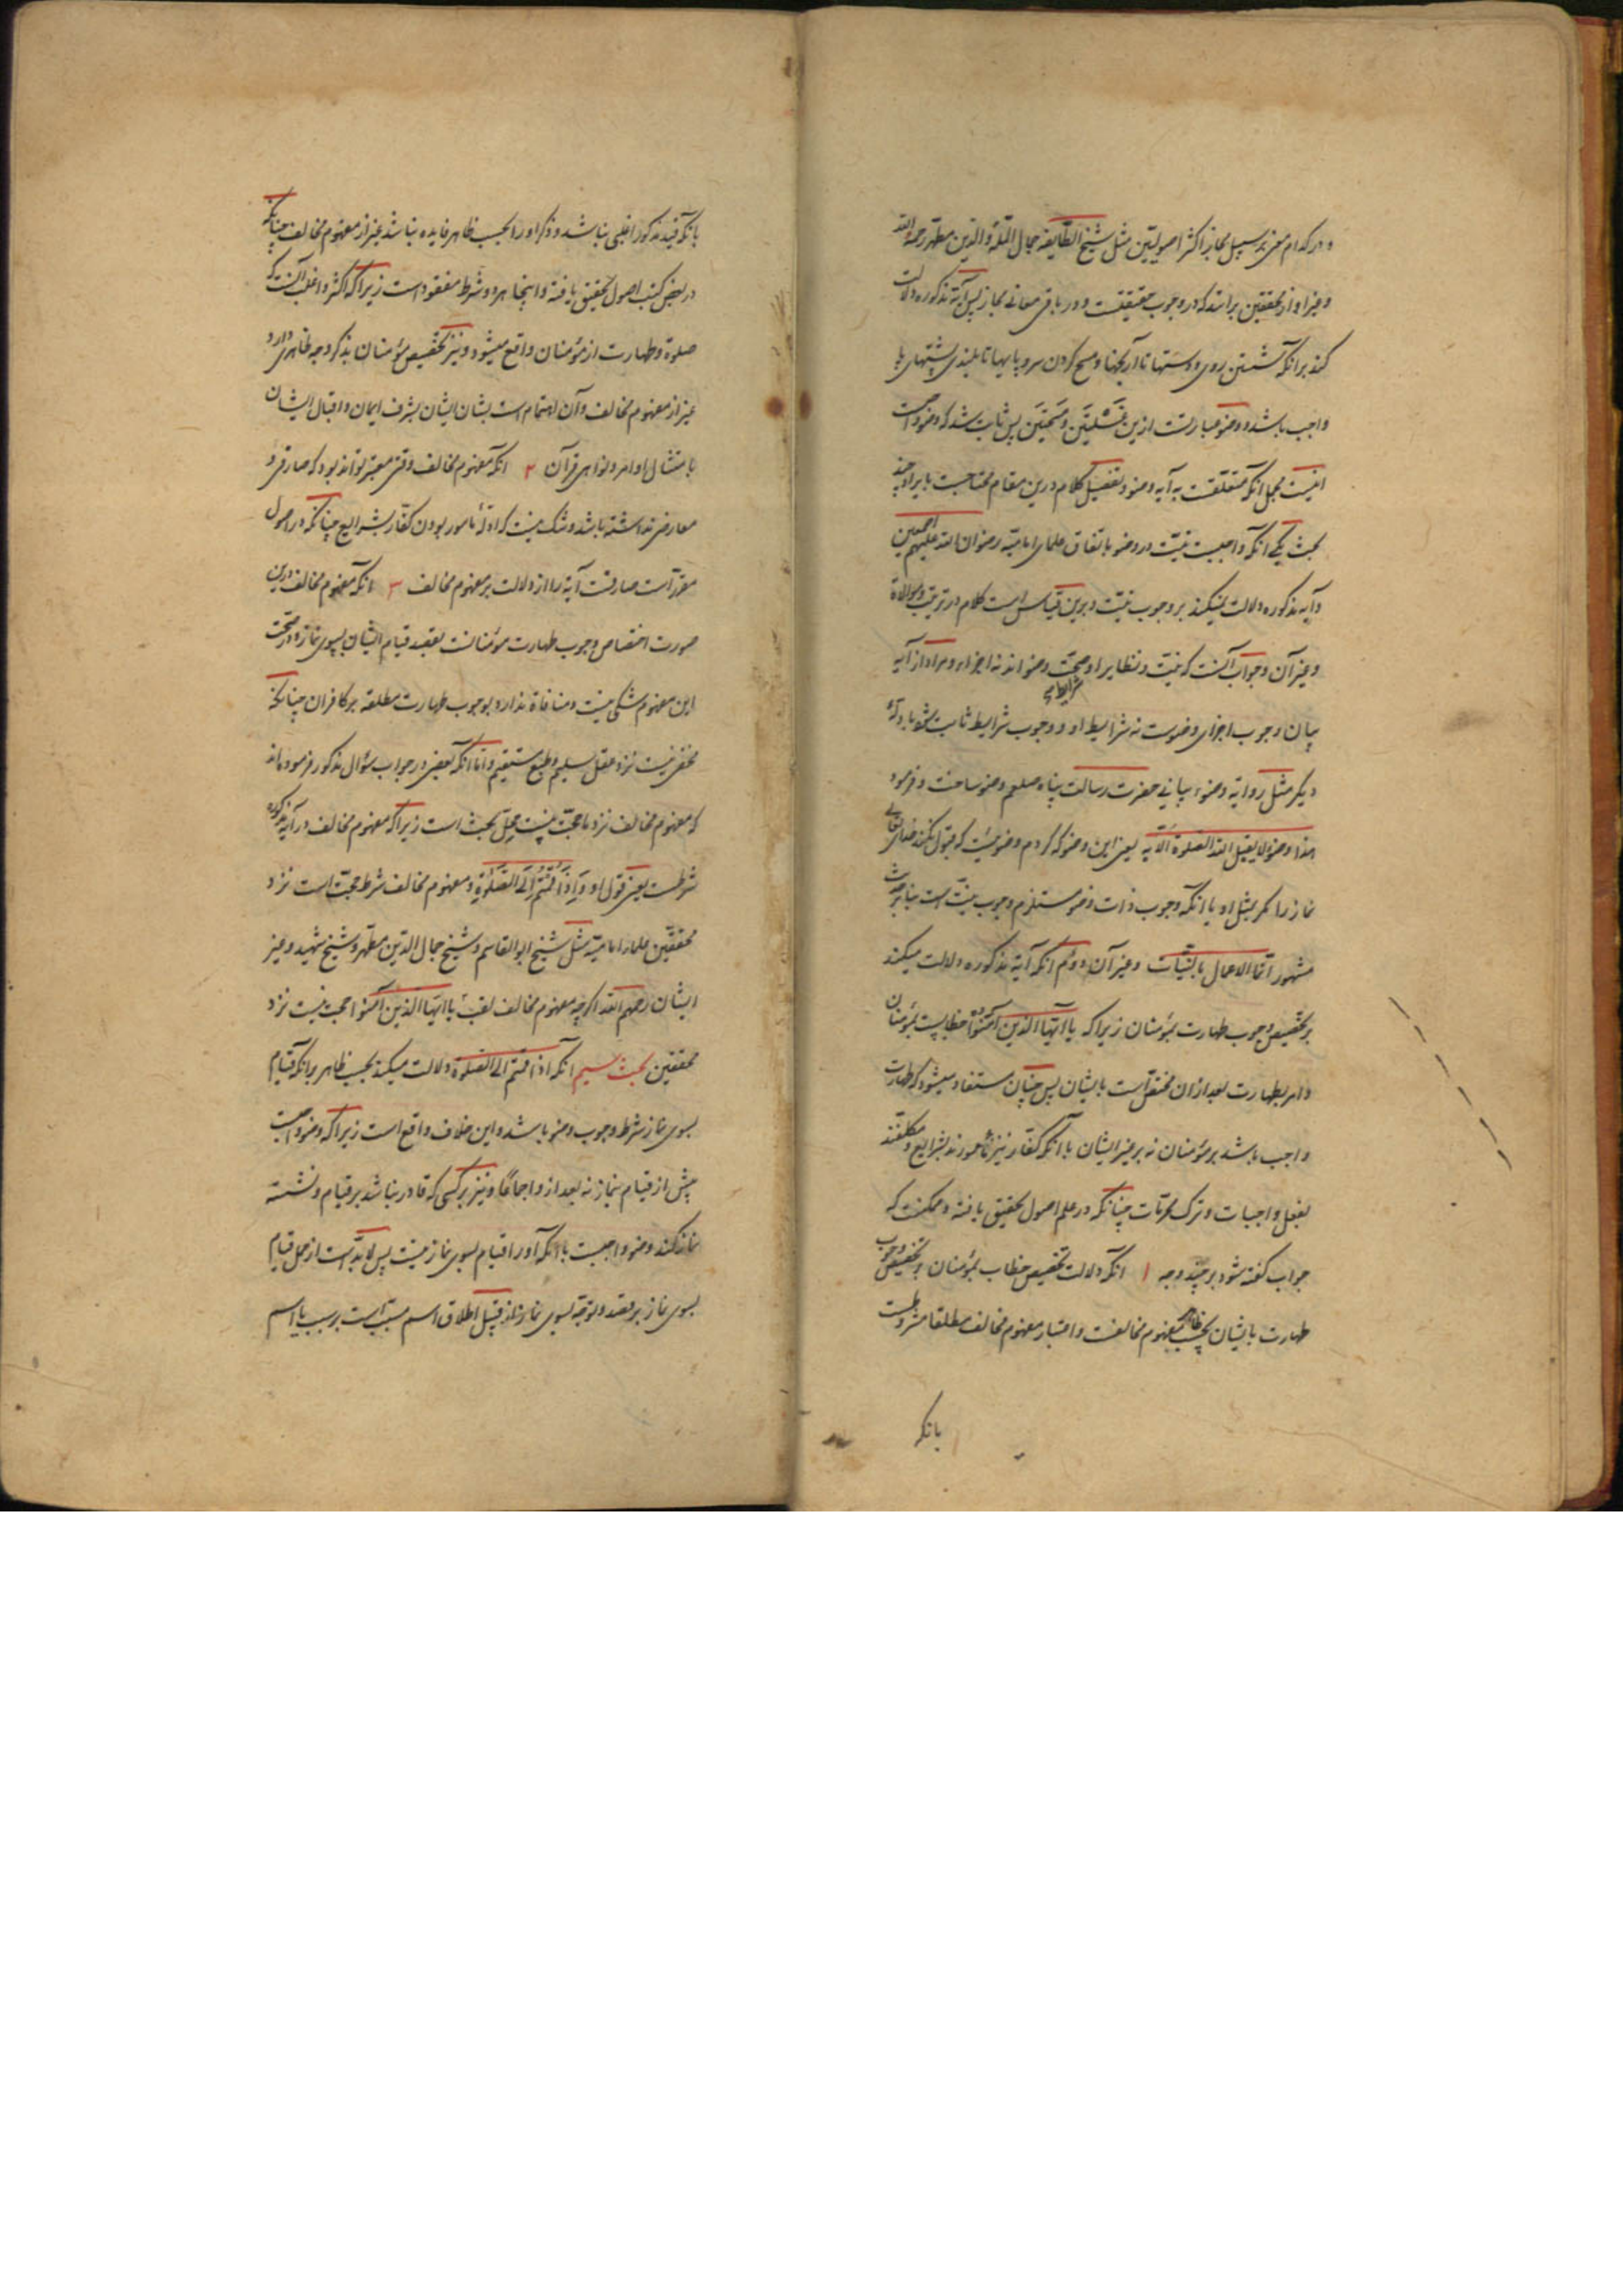 و در کدام معنی بر سبیل مجاز اکثر اصولیین مثل شیخ الطایفه جمال الملّة والدین مطهر رحمه الله
و غیر او از محققین برانند که در وجوب حقیقتست و در باقی معانی مجاز پس آیه مذکوره دلالت
کند برانکه شستن روی و دستها تا آرنجها و مسح کردن سر و پایها تا بلندی پشتهای پا
واجب باشد و وضو عبارتست ازین غَسْلَتَین و مَسْحَتَین پس ثابت شد که وضو واجبست
اینست مجمل انکه متعلقست به آیه وضو و تفصیل کلام درین مقام محتاجست بایراد چند
بحث یکی انکه واجبست نیّت در وضو باتفاق علمای امامیّه رضوان الله علیهم اجمعین
و آیه مذکوره دلالت نمیکند بر وجوب نیّت و برین قیاس است کلام در ترتیب و موالاة
و غیر آن و جواب آنست که نیّت و نظایر او شرایط صحّت وضواند نه اجزاء و مراد از آیه
بیان وجوب اجزای وضوست نه شرایط او و وجوب شرایط ثابت شود بادلّهٔ
دیگر مثل روایة وضوء بیانی حضرت رسالت پناه صلعم وضو ساخت و فرمود
هذا وضوء لا یقبل الله الصلوة الّا به یعنی این وضو که کردم وضوئیست که قبول نکند خدای تعالی
نماز را مگر بمثل او یا انکه وجوب ذات وضو مستلزم وجوب نیّت است بنابر حدیث
مشهور انّما الاعمال بالنّیّات و غیر آن دوّم انکه آیة مذکوره دلالت میکند
بر تخصیص وجوب طهارت بمؤمنان زیراکه یا ایّها الذین آمنوا خطابیست بمؤمنان
و امر بطهارت بعد ازان مختصّ است بایشان پس چنان مستفاد میشود که طهارت
واجب باشد بر مؤمنان نه بر غیر ایشان با انکه کفّار نیز مأمورند بشرایع و مکلفند
بفعل واجبات و ترک محرّمات چنانکه در علم اصول تحقیق یافته و ممکنست که
جواب گفته شود بر چند وجه ۱ انکه دلالت تخصیص خطاب بمؤمنان بر تخصیص وجوب
طهارت بایشان بحسب ظاهر بمفهوم مخالفست و اعتبار مفهوم مخالف مطلقا مشروطست
بانکه
بانکه قید مذکور اغلبی نباشد و ذکر او را بحسب ظاهر فایده نباشد غیر از مفهوم مخالف چنانکه
در بعض کتب اصول تحقیق یافته و اینجا هر دو شرط مفقود است زیراکه اکثر و اغلب آنست که
صلوة و طهارت از مؤمنان واقع میشود و نیز تخصیص مؤمنان بذکر وجه ظاهری دارد
غیر از مفهوم مخالف و آن اهتمام است بشان ایشان بشرف ایمان و اقبال ایشان
بامتثال اوامر و نواهی قرآن ۲ انکه مفهوم مخالف وقتی معتبر تواند بود که صارفی و
معارضی نداشته باشد و شک نیست که ادلّهٔ مامور بودن کفّار بشرایع چنانکه در اصول
مقرّر است صارفست آیة را از دلالت بر مفهوم مخالف ۳ انکه مفهوم مخالف درین
صورت اختصاص وجوب طهارت مؤمنانست بقید قیام ایشان بسوی نماز و در صحّت
این مفهوم شکی نیست و منافاة ندارد بوجوب طهارت مطلقه بر کافران چنانکه
مخفی نیست نزد عقل سلیم و طبع مستقیم و امّا انکه بعضی در جواب سؤال مذکور فرموده‌اند
که مفهوم مخالف نزد ما حجّت نیست محلّ بحث است زیراکه مفهوم مخالف در آیه مذکوره
شرطست یعنی قول او وَ اِذَا قُمْتُمْ اِلَی الصَّلٰوةِ و مفهوم مخالف شرط حجّت است نزد
محققین علماء امامیّه مثل شیخ ابو القاسم و شیخ جمال الدّین مطهّر و شیخ شهید و غیر
ایشان رحمهم الله اگرچه مفهوم مخالف لقب یا ایها الذین آمنوا حجت نیست نزد
محققین بحث سیم انکه اذا قمتم الی الصلوة دلالت میکند بحسب ظاهر برانکه قیام
بسوی نماز شرط وجوب وضو باشد و این خلاف واقع است زیراکه وضو واجبست
پیش از قیام بنماز نه بعد از و اجماعًا و نیز بر کسی که قادر نباشد بر قیام و نشسته
نماز کند وضو واجبست با انکه او را قیام بسوی نماز نیست پس لابدّ است از حمل قیام
بسوی نماز بر قصد و توجّه بسوی نماز از قبیل اطلاق اسم مسبّب است بر سبب یا اسم